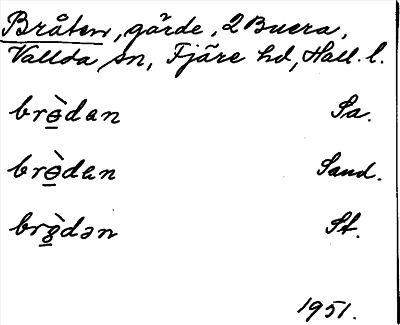 Bråten, gärde, 2 Buera,
Vallda sn, Fjäre hd, Hall. l.
brɵ̠̀dan Sa.
brɵ̠̀dan Sand.
brɵ̠̀dən St.
1951.